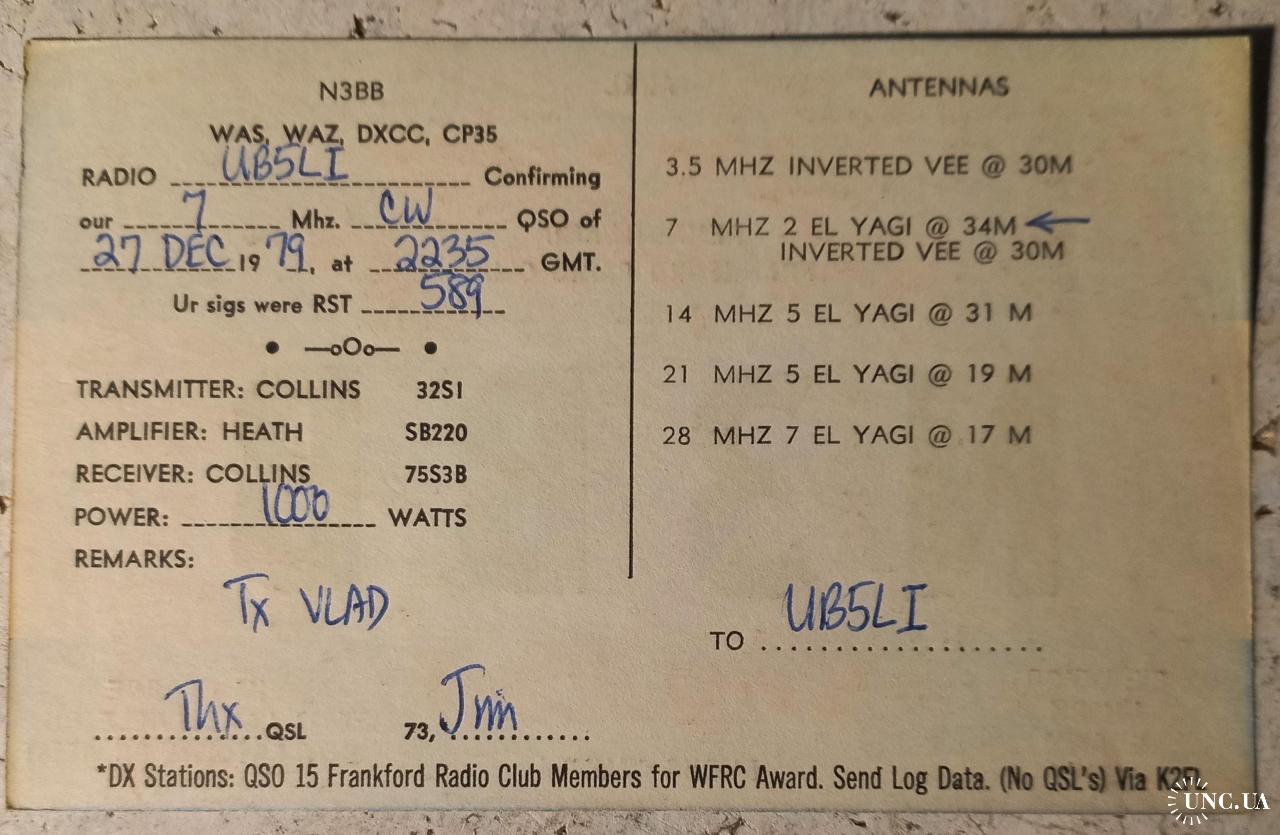 N3BB
WAS, WAZ, DXCC, CP35
RADIO UB5LI Confirming
our 7 Mhz. CW QSO of
27 DEC 1979, at 2235 GMT.
Ur sigs were RST 589
• —oOo— •
TRANSMITTER: COLLINS 32S1
AMPLIFIER: HEATH SB220
RECEIVER: COLLINS 75S3B
POWER: 1000 WATTS
REMARKS:
Tx VLAD
Thx QSL 73, Jim
ANTENNAS
3.5 MHZ INVERTED VEE @ 30M
7 MHZ 2 EL YAGI @ 34M ←
INVERTED VEE @ 30M
14 MHZ 5 EL YAGI @ 31 M
21 MHZ 5 EL YAGI @ 19 M
28 MHZ 7 EL YAGI @ 17 M
TO UB5LI
*DX Stations: QSO 15 Frankford Radio Club Members for WFRC Award. Send Log Data. (No QSL's) Via
UNC.UA